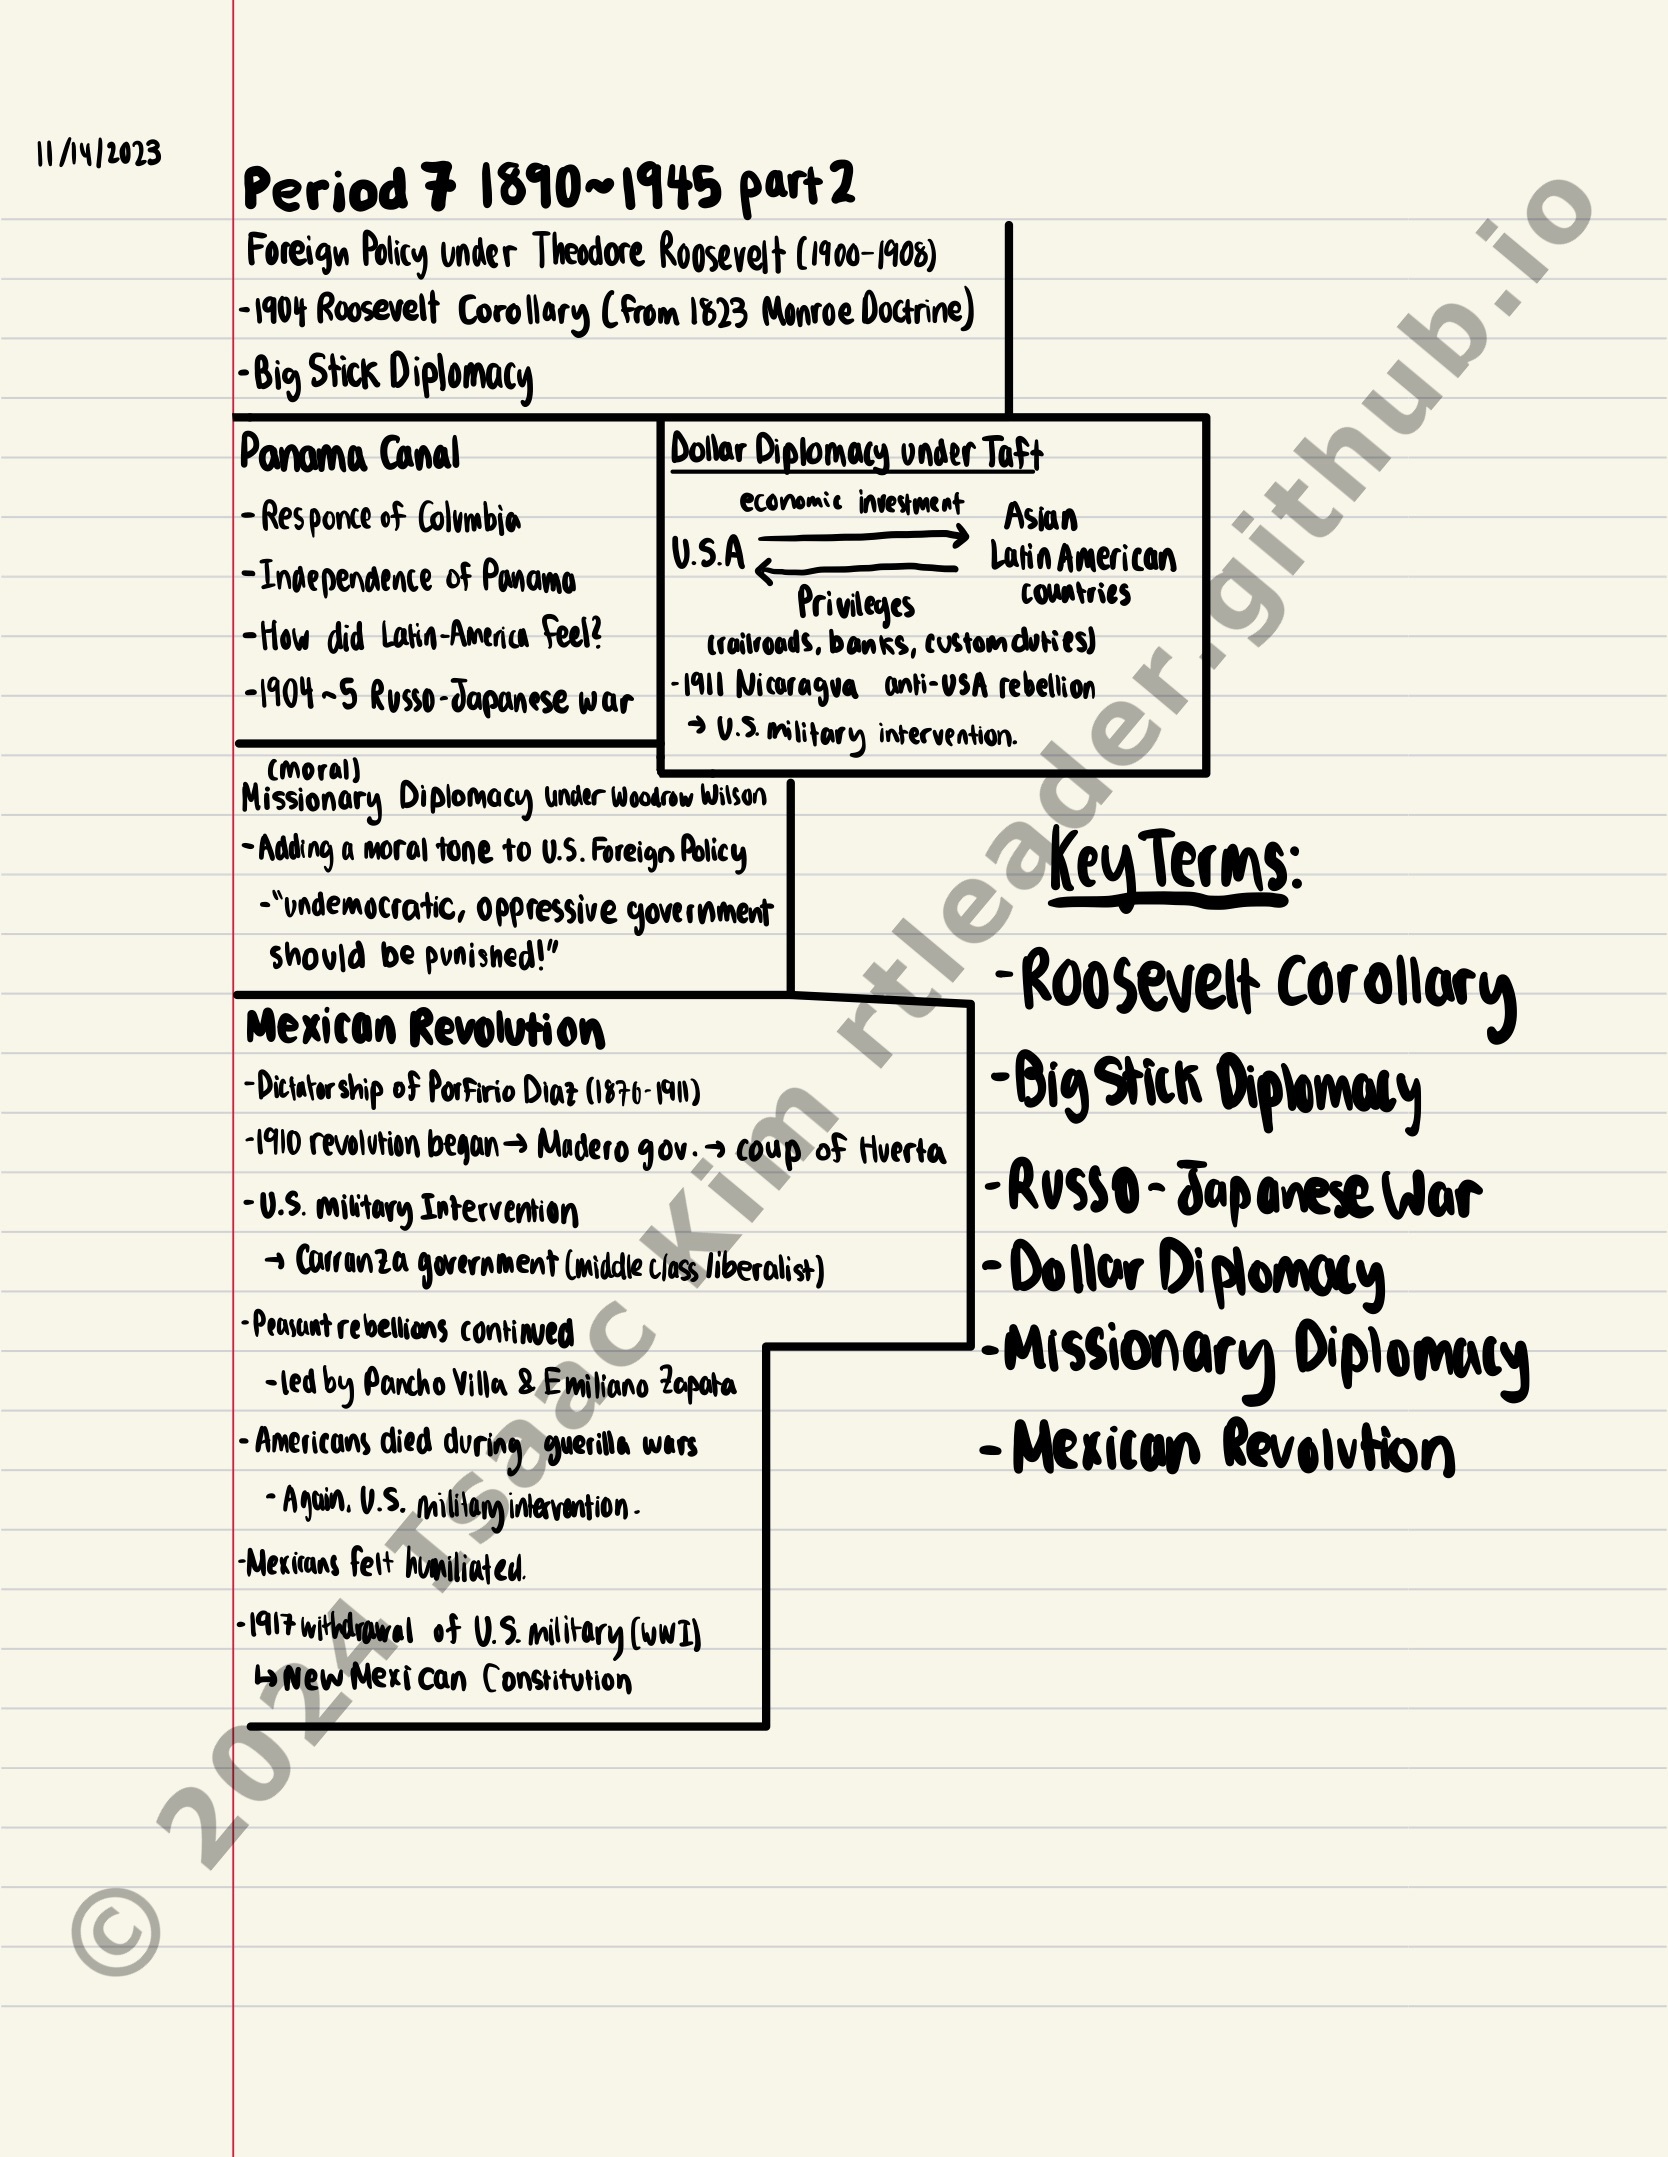 11/14/2023
Period 7 1890~1945 part 2
Foreign Policy under Theodore Roosevelt (1900-1908)
-1904 Roosevelt Corollary (from 1823 Monroe Doctrine)
-Big Stick Diplomacy
Panama Canal
-Responce of Columbia
-Independence of Panama
-How did Latin-America feel?
-1904~5 Russo-Japanese war
Dollar Diplomacy under Taft
economic investment
U.S.A
Asian
Latin American
countries
Privileges
(railroads, banks, custom duties)
-1911 Nicaragua anti-USA rebellion
→ U.S. military intervention.
(moral)
Missionary Diplomacy under Woodrow Wilson
-Adding a moral tone to U.S. Foreign Policy
-"undemocratic, oppressive government
should be punished!"
Mexican Revolution
-Dictatorship of Porfirio Diaz (1876-1911)
-1910 revolution began → Madero gov. → coup of Huerta
-U.S. military Intervention
→ Carranza government (middle class liberalist)
-Peasant rebellions continued
-led by Pancho Villa & Emiliano Zapata
-Americans died during guerilla wars
-Again, U.S. military intervention.
-Mexicans felt humiliated.
-1917 withdrawal of U.S. military (WWI)
↳ New Mexican Constitution
Key Terms:
-Roosevelt Corollary
-Big Stick Diplomacy
-Russo-Japanese War
-Dollar Diplomacy
-Missionary Diplomacy
-Mexican Revolution
© 2024 Isaac Kim rtleader.github.io